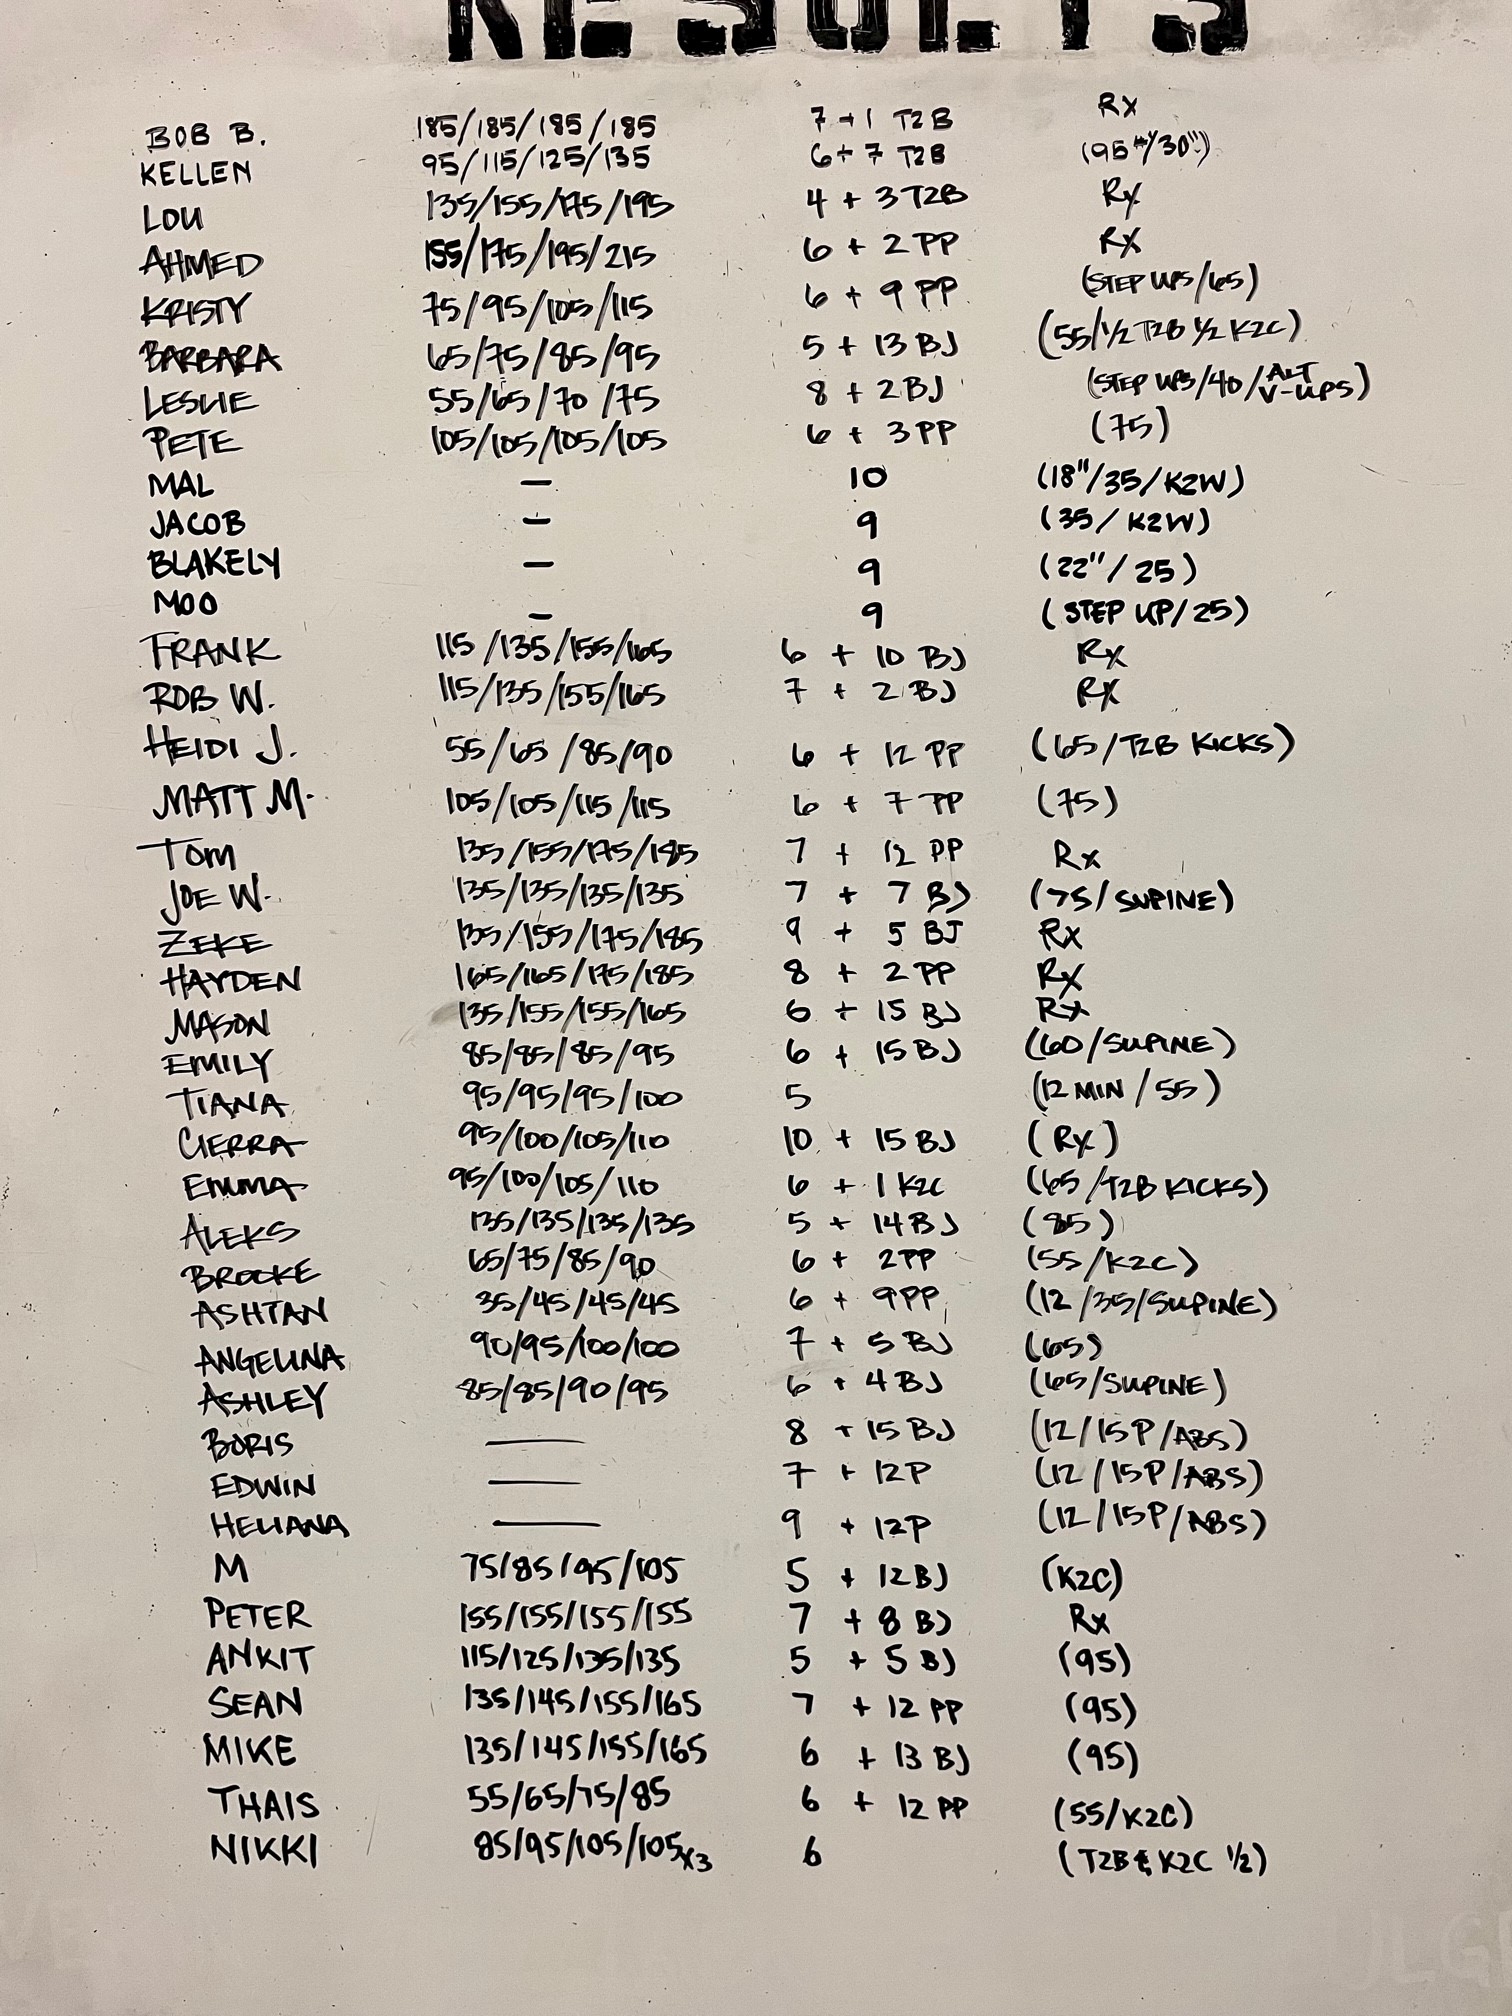 RESULTS
BOB B. 185/185/185/185 7 + 1 T2B Rx
KELLEN 95/115/125/135 6 + 7 T2B (95#/30")
LOU 135/155/175/195 4 + 3 T2B Rx
AHMED 155/175/195/215 6 + 2 PP RX
KRISTY 75/95/105/115 6 + 9 PP (STEP UPS/65)
BARBARA 65/75/85/95 5 + 13 BJ (55/1/2 T2B 1/2 K2C)
LESLIE 55/65/70/75 8 + 2 BJ (STEP UPS/40/ALT V-UPS)
PETE 105/105/105/105 6 + 3 PP (75)
MAL — 10 (18"/35/K2W)
JACOB — 9 (35/K2W)
BLAKELY — 9 (22"/25)
MOO — 9 (STEP UP/25)
FRANK 115/135/155/165 6 + 10 BJ Rx
ROB W. 115/135/155/165 7 + 2 BJ RX
HEIDI J. 55/65/85/90 6 + 12 PP (65/T2B KICKS)
MATT M. 105/105/115/115 6 + 7 PP (75)
TOM 135/155/175/185 7 + 12 PP Rx
JOE W. 135/135/135/135 7 + 7 BJ (75/SUPINE)
ZEKE 135/155/175/185 9 + 5 BJ Rx
HAYDEN 165/165/175/185 8 + 2 PP Rx
MASON 135/155/155/165 6 + 15 BJ Rx
EMILY 85/85/85/95 6 + 15 BJ (60/SUPINE)
TIANA 95/95/95/100 5 (12 MIN/55)
CIERRA 95/100/105/110 10 + 15 BJ (Rx)
EMMA 95/100/105/110 6 + 1 K2C (65/T2B KICKS)
ALEKS 135/135/135/135 5 + 14 BJ (85)
BROOKE 65/75/85/90 6 + 2 PP (55/K2C)
ASHTAN 35/45/45/45 6 + 9 PP (12/35/SUPINE)
ANGELINA 90/95/100/100 7 + 5 BJ (65)
ASHLEY 85/85/90/95 6 + 4 BJ (65/SUPINE)
BORIS — 8 + 15 BJ (12/15P/ABS)
EDWIN — 7 + 12P (12/15P/ABS)
HELIANA — 9 + 12P (12/15P/ABS)
M 75/85/95/105 5 + 12 BJ (K2C)
PETER 155/155/155/155 7 + 8 BJ Rx
ANKIT 115/125/135/135 5 + 5 BJ (95)
SEAN 135/145/155/165 7 + 12 PP (95)
MIKE 135/145/155/165 6 + 13 BJ (95)
THAIS 55/65/75/85 6 + 12 PP (55/K2C)
NIKKI 85/95/105/105x3 6 (T2B & K2C 1/2)